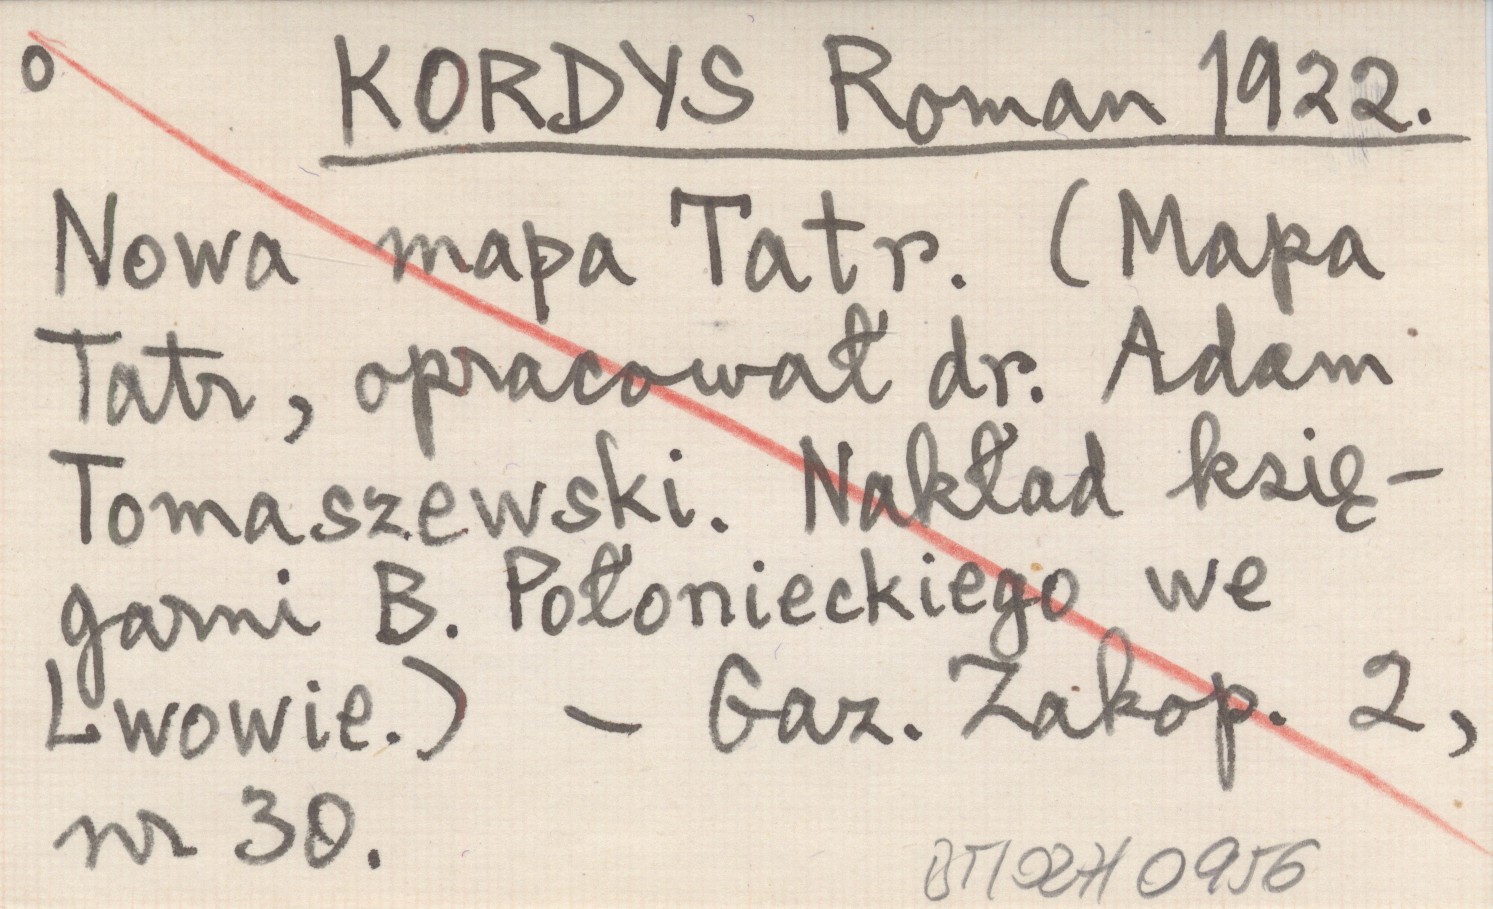 o KORDYS Roman 1922.
Nowa mapa Tatr. (Mapa
Tatr, opracował dr. Adam
Tomaszewski. Nakład księ-
garni B. Połonieckiego we
Lwowie.) - Gaz. Zakop. 2,
nr 30.
0956